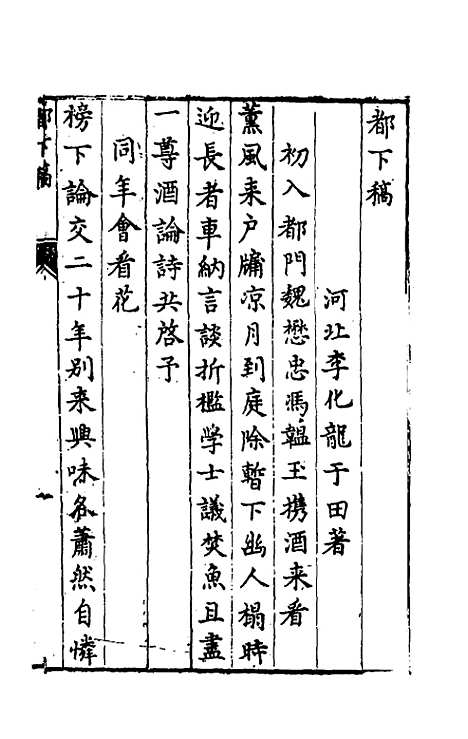 都下稿
河北李化龍于田著
初入都門魏懋忠馮韞玉攜酒来看
薰風来户牖凉月到庭除暫下幽人榻時
迎長者車納言談折檻学士議焚魚且盡
一尊酒論詩共啓予
同年會看花
榜下論交二十年别来興味各蕭然自憐
都下稿
一